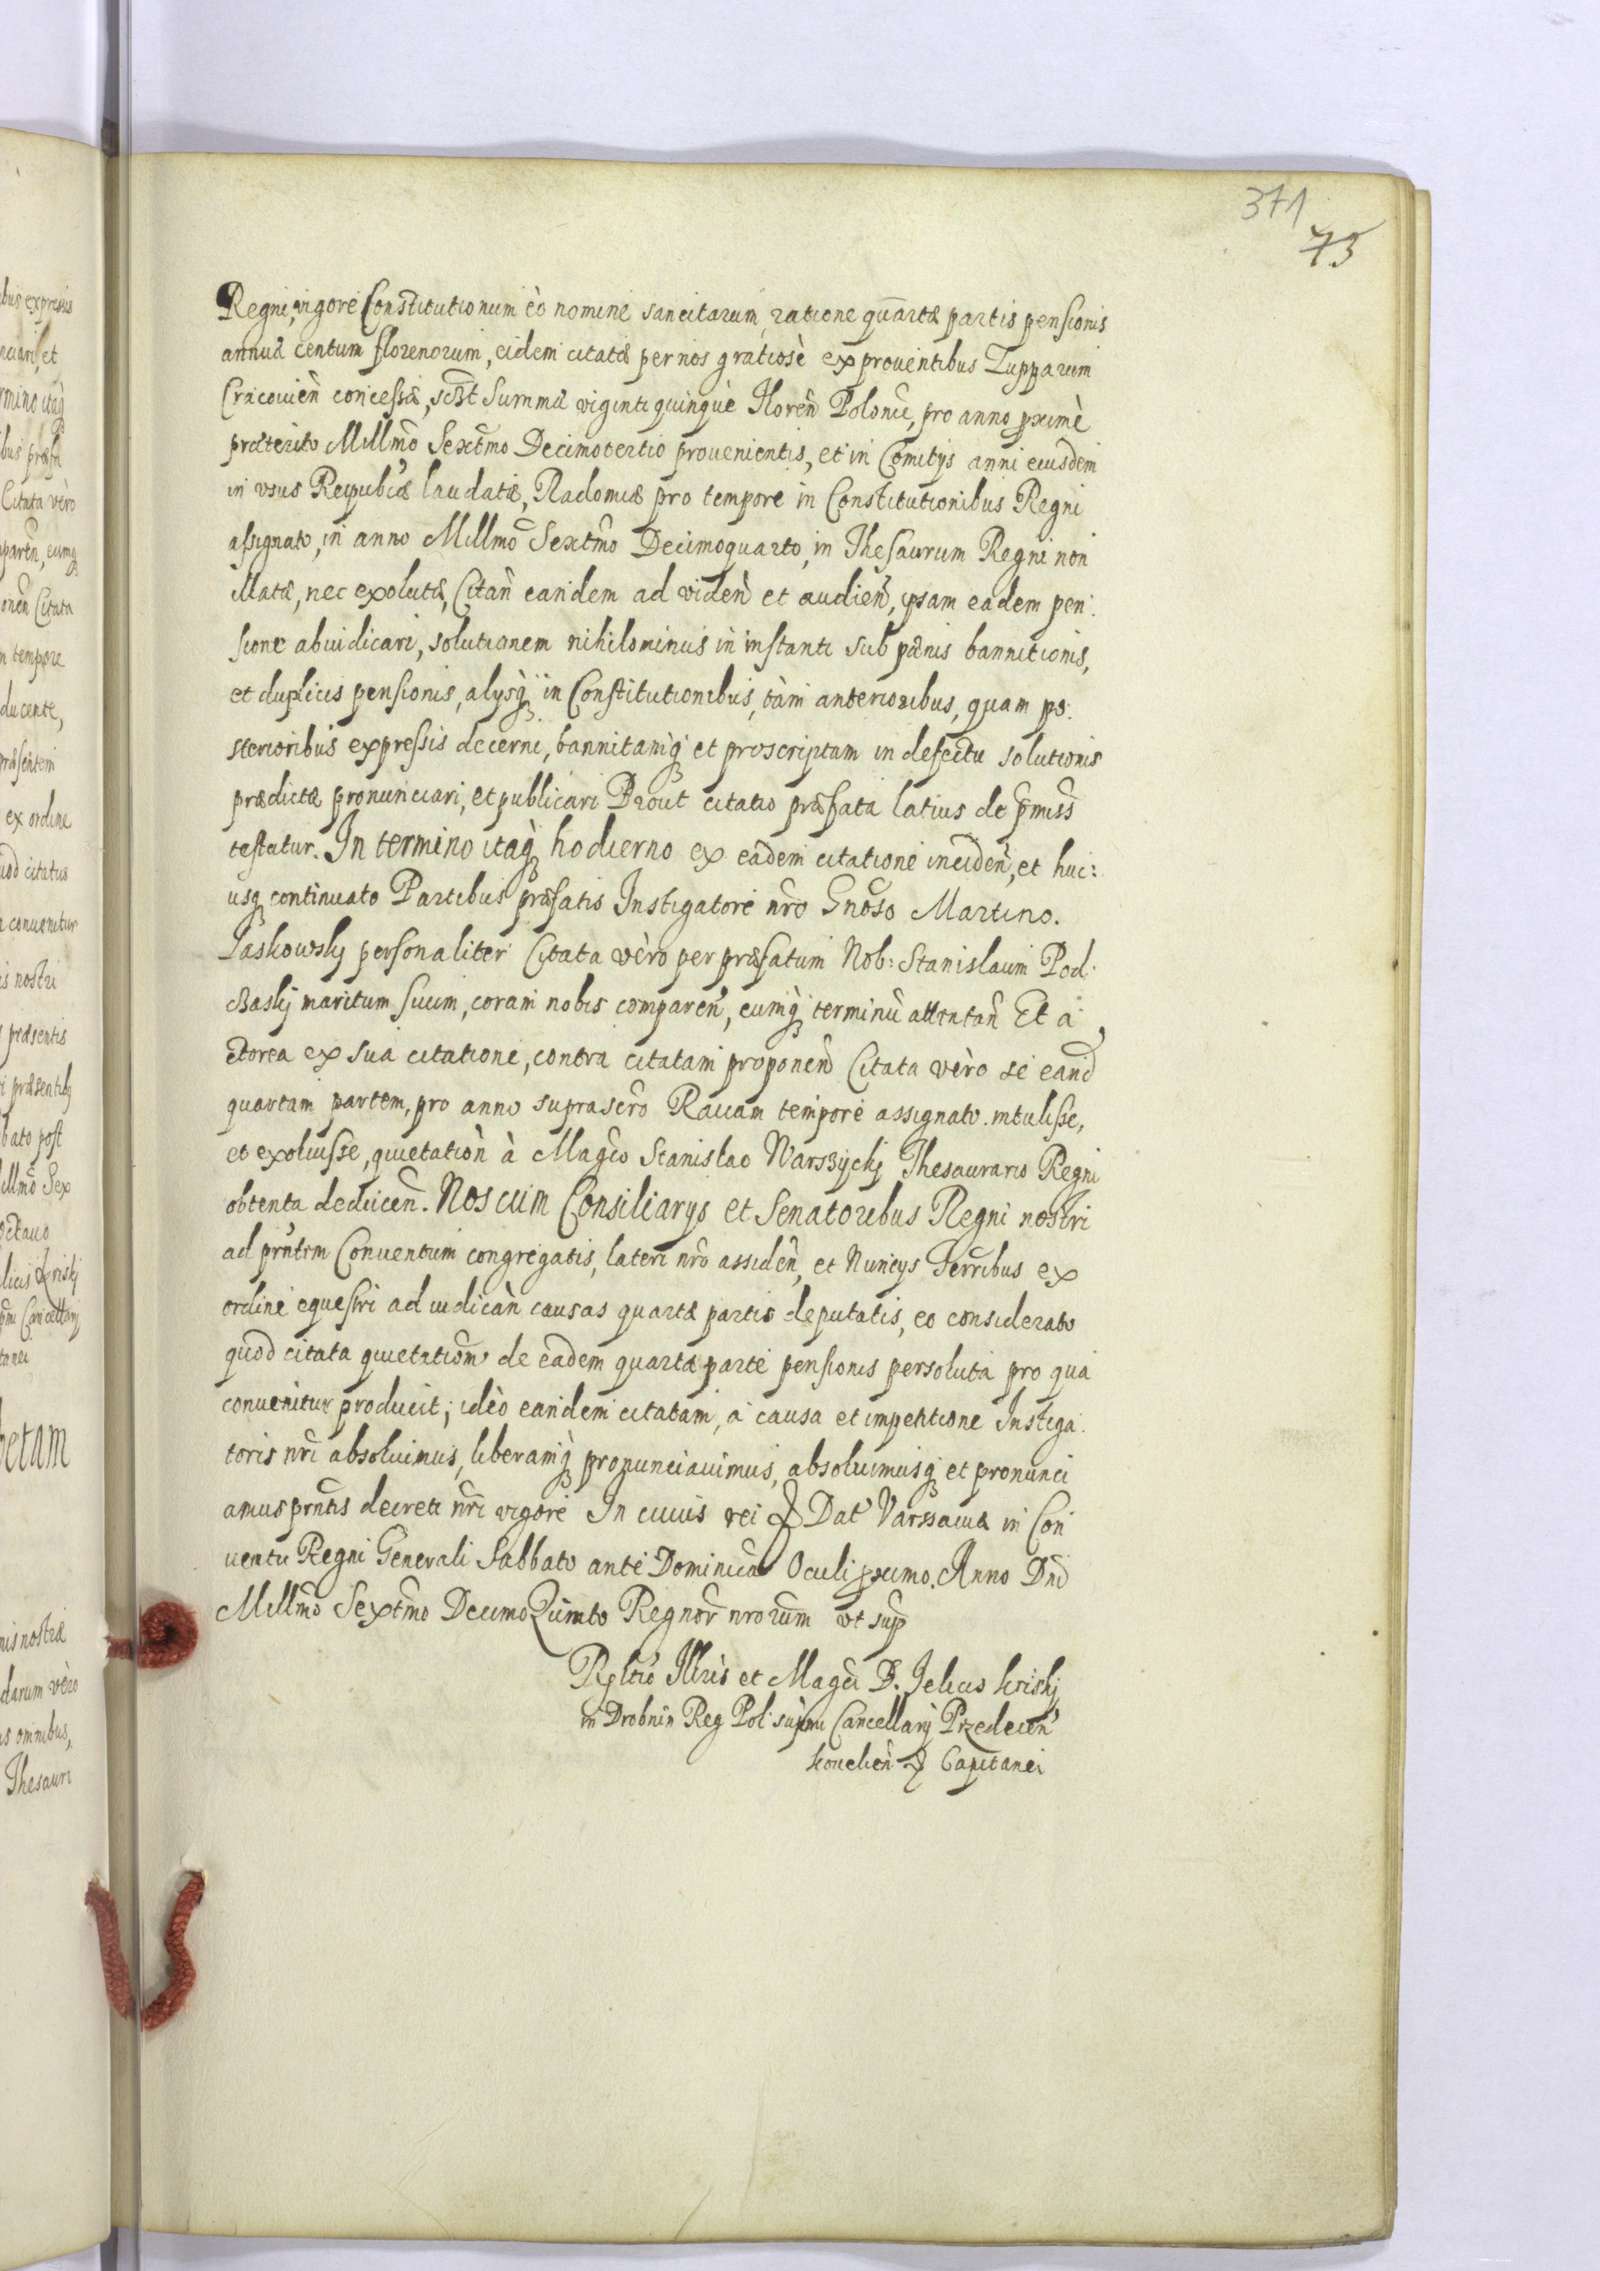 371
73
Regni, vigore Constitutionum eò nomine sancitarum, ratione quartæ partis pensionis
annuæ centum florenorum, eidem citatæ per nos gratiosè ex prouentibus Zupparum
Cracouien̄ concessæ, scɮt Summæ viginti quinque Floren̄ Polonic, pro anno pximè
præterito Millmo Sextmo Decimotertio prouenientis, et in Comitys anni eiusdem
in vsus Reipubcæ laudatæ, Radomiæ pro tempore in Constitutionibus Regni
assignato, in anno Millmo Sextmo Decimoquarto, in Thesaurum Regni non
illatæ, nec exolutæ, Citan̄ eandem ad viden̄ et audien̄, ipsam eadem pen:
sione abiudicari, solutionem nihilominus in instanti sub pœnis bannitionis,
et duplicis pensionis, alysq̃ in Constitutionibus, tàm anterioribus, quam po:
sterioribus expressis decerni, bannitamq̃ et proscriptam in defectu solutionis
prædictæ pronunciari, et publicari Prout citatio præfata latius de pmiss
testatur. In termino itaq̃ hodierno ex eadem citatione inciden̄, et huc:
usq̃ continuato Partibus præfatis Instigatore nr̄o Gnoso Martino.
Paskowsky personaliter Citata vèro per præfatum Nob: Stanislaum Pod:
Basky maritum suum, coram nobis comparen̄, eumq̃ terminū attentan̄ Et a
ctorea ex sua citatione, contra citatam proponen̄ Citata vèro se eand
quartam partem, pro anno suprascro Rauam tempore assignato intulisse,
et exoluisse, quietation̄ à Magco Stanislao Warszycky Thesaurario Regni
obtenta deducen̄. Nos cum Consiliarys et Senatoribus Regni nostri
ad prn̄tem Conuentum congregatis, lateri nr̄o assiden̄, et Nuncys Terribus ex
ordine equestri ad iudican̄ causas quartæ partis deputatis, eo considerato
quod citata quietationē de eadem quarta parte pensionis persoluta pro qua
conuenitur producit; ideò eandem citatam, a causa et impetitione Instiga:
toris nr̄i absoluimus, liberamq̃ pronunciauimus, absoluimusq̃ et pronunci
amus prn̄tis decreti nr̄i vigore In cuius rei Dat Varssauiæ in Con
uentu Regni Generali Sabbato ante Dominica Oculi pximo. Anno Dni
Millmo Sextmo Decimo Quinto Regnor nrorum vt sup
Rel̄tio Illris et Magci D. Felicis Krisky
in Drobnin Reg Pol supmi Cancellarij Przedecen̄
Kouelien̄ Capitanei